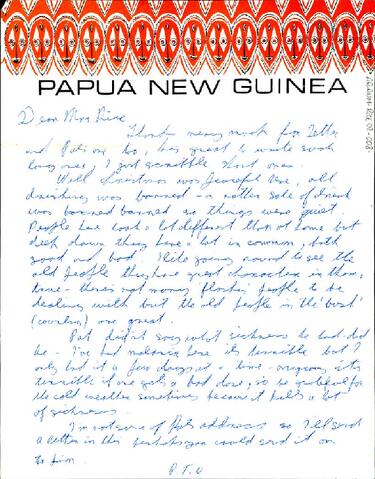 PAPUA NEW GUINEA
Dear Mrs
Thanks very much for letter
and Pat's one too, its great to write such
long ones, I just scribble short ones.
Well christmas was peaceful here, all
drinking was banned - or rather sale of drink
was banned banned so things were quiet.
People here look a lot different than at home but
deep down they have a lot in common, both
good and bad. I like going round to see the
old people they have great characters in them,
true - there's not many people to be
dealing with but the old people in the 'bush'
(country) are great.
Pat didn't say what sickness he had did
he - I've had malaria here its terrible but I
only had it a few days at a time - anyway its
terrible if one gets a bad dose, so be grateful for
the cold weather sometimes because it kills a lot
of sickness.
I'm not sure of Pats address so I'll send
a letter in this perhaps you could send it on
to him.
P.T.O